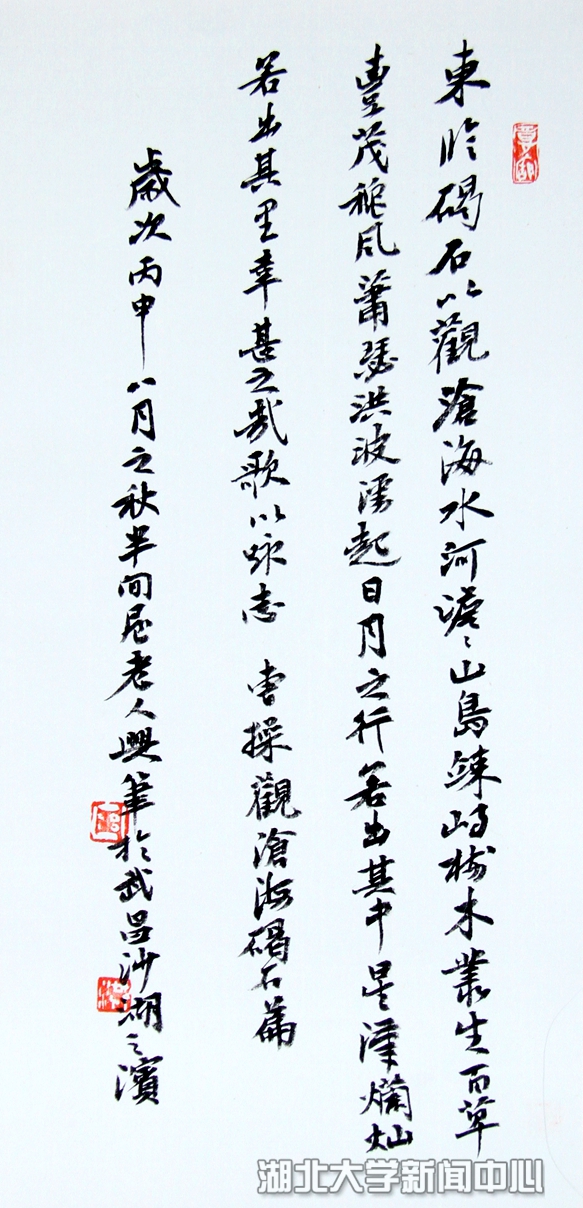 東臨碣石以觀滄海水河澹々山島竦峙樹木叢生百草
豊茂秋風蕭瑟洪波湧起日月之行若出其中星漢爛灿
若出其里幸甚之哉歌以咏志 曹操觀滄海碣石篇
歲次丙申八月之秋半间屋老人興筆於武昌沙湖之濱
湖北大学新闻中心